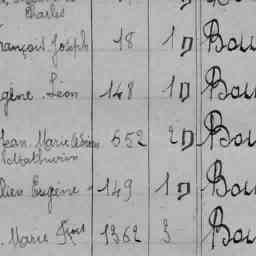 Charles
rançois Joseph 18 1 D Bou
gène Léon 148 1 D Bou
Jean Marie 652 2 D Bou
Mathurin
lien Eugène 149 1 D Bou
Marie Frois 1362 3 Bou